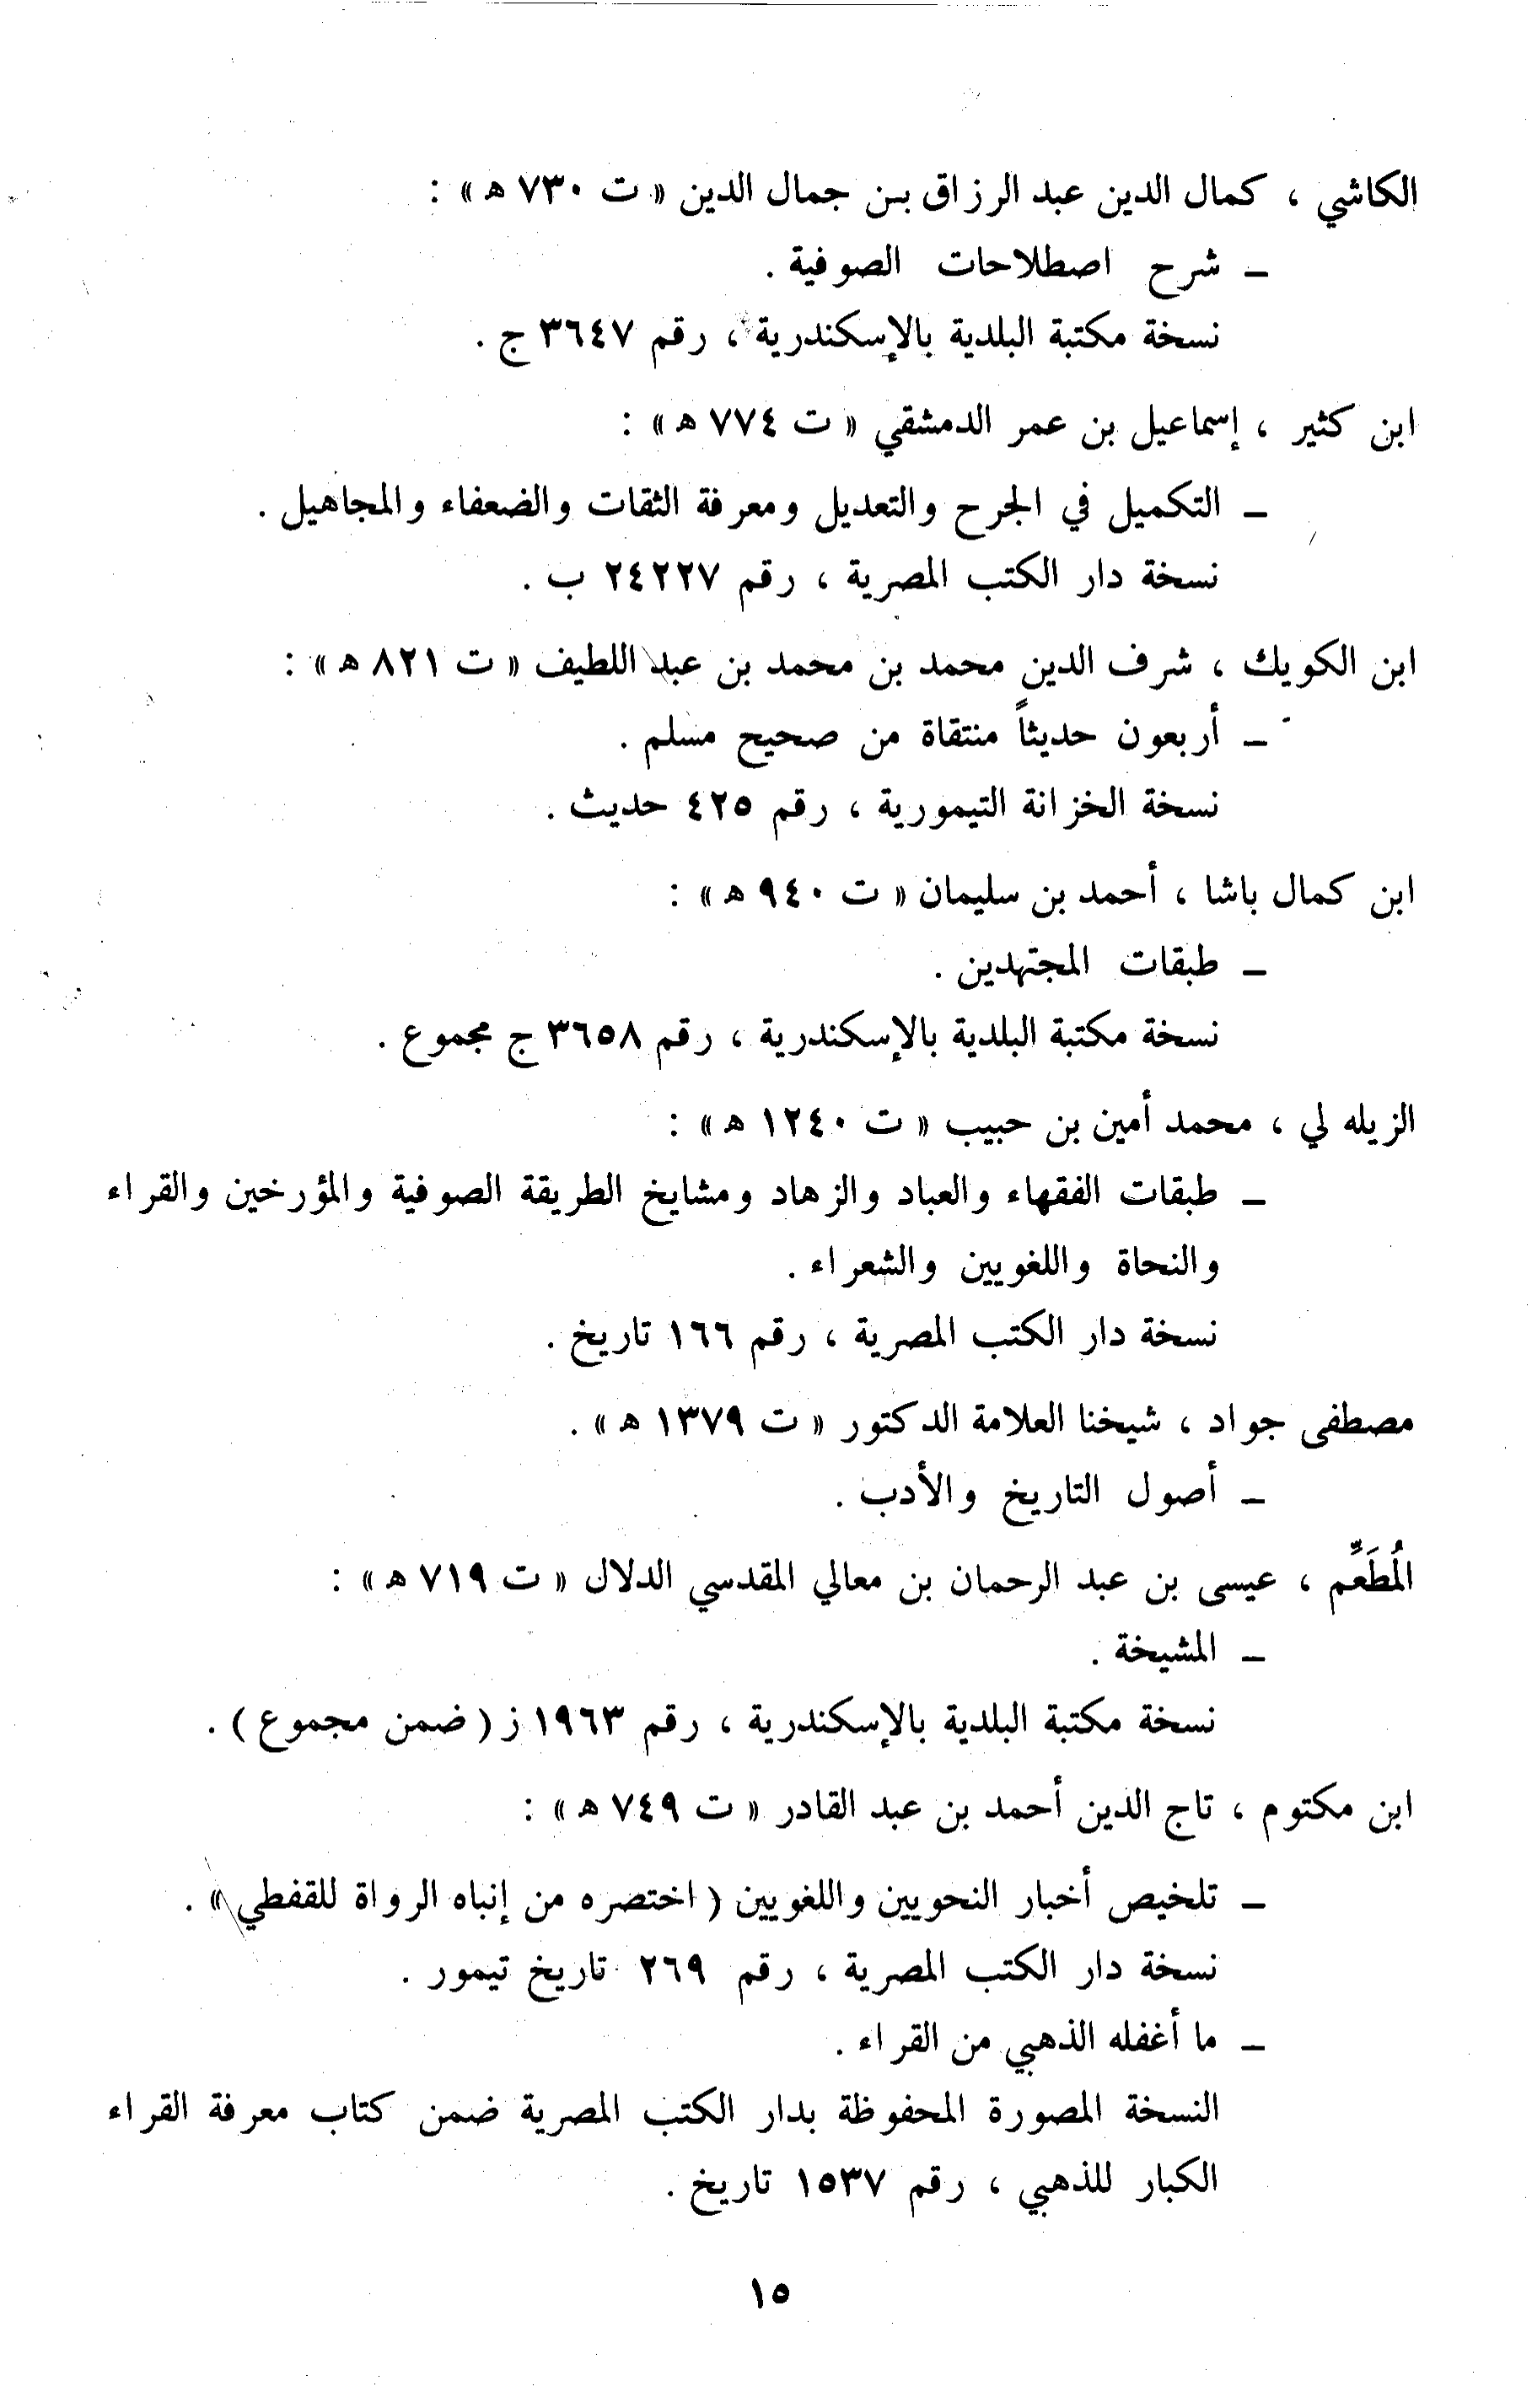 الكاشي ، كمال الدين عبد الرزاق بن جمال الدين « ت ٧٣٠ ه‍ » :
ـ شرح اصطلاحات الصوفية .
نسخة مكتبة البلدية بالإسكندرية ، رقم ٣٦٤٧ ج .
ابن كثير ، إسماعيل بن عمر الدمشقي « ت ٧٧٤ ه‍ » :
ـ التكميل في الجرح والتعديل ومعرفة الثقات والضعفاء والمجاهيل .
نسخة دار الكتب المصرية ، رقم ٢٤٢٢٧ ب .
ابن الكويك ، شرف الدين محمد بن محمد بن عبد اللطيف « ت ٨٢١ ه‍ » :
ـ أربعون حديثاً منتقاة من صحيح مسلم .
نسخة الخزانة التيمورية ، رقم ٤٢٥ حديث .
ابن كمال باشا ، أحمد بن سليمان « ت ٩٤٠ ه‍ » :
ـ طبقات المجتهدين .
نسخة مكتبة البلدية بالإسكندرية ، رقم ٣٦٥٨ ج مجموع .
الزيله لي ، محمد أمين بن حبيب « ت ١٢٤٠ ه‍ » :
ـ طبقات الفقهاء والعباد والزهاد ومشايخ الطريقة الصوفية والمؤرخين والقراء
والنحاة واللغويين والشعراء .
نسخة دار الكتب المصرية ، رقم ١٦٦ تاريخ .
مصطفى جواد ، شيخنا العلامة الدكتور « ت ١٣٧٩ ه‍ » .
ـ أصول التاريخ والأدب .
المُطَعِّم ، عيسى بن عبد الرحمان بن معالي المقدسي الدلال « ت ٧١٩ ه‍ » :
ـ المشيخة .
نسخة مكتبة البلدية بالإسكندرية ، رقم ١٩٦٣ ز ( ضمن مجموع ) .
ابن مكتوم ، تاج الدين أحمد بن عبد القادر « ت ٧٤٩ ه‍ » :
ـ تلخيص أخبار النحويين واللغويين ( اختصره من إنباه الرواة للقفطي » .
نسخة دار الكتب المصرية ، رقم ٢٦٩ تاريخ تيمور .
ـ ما أغفله الذهبي من القراء .
النسخة المصورة المحفوظة بدار الكتب المصرية ضمن كتاب معرفة القراء
الكبار للذهبي ، رقم ١٥٣٧ تاريخ .
١٥